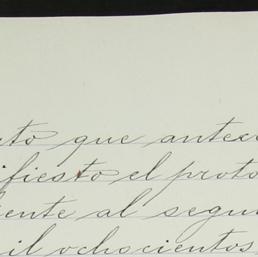 cto que antece
ifiesto el proto
iente al segun
il ochocientos